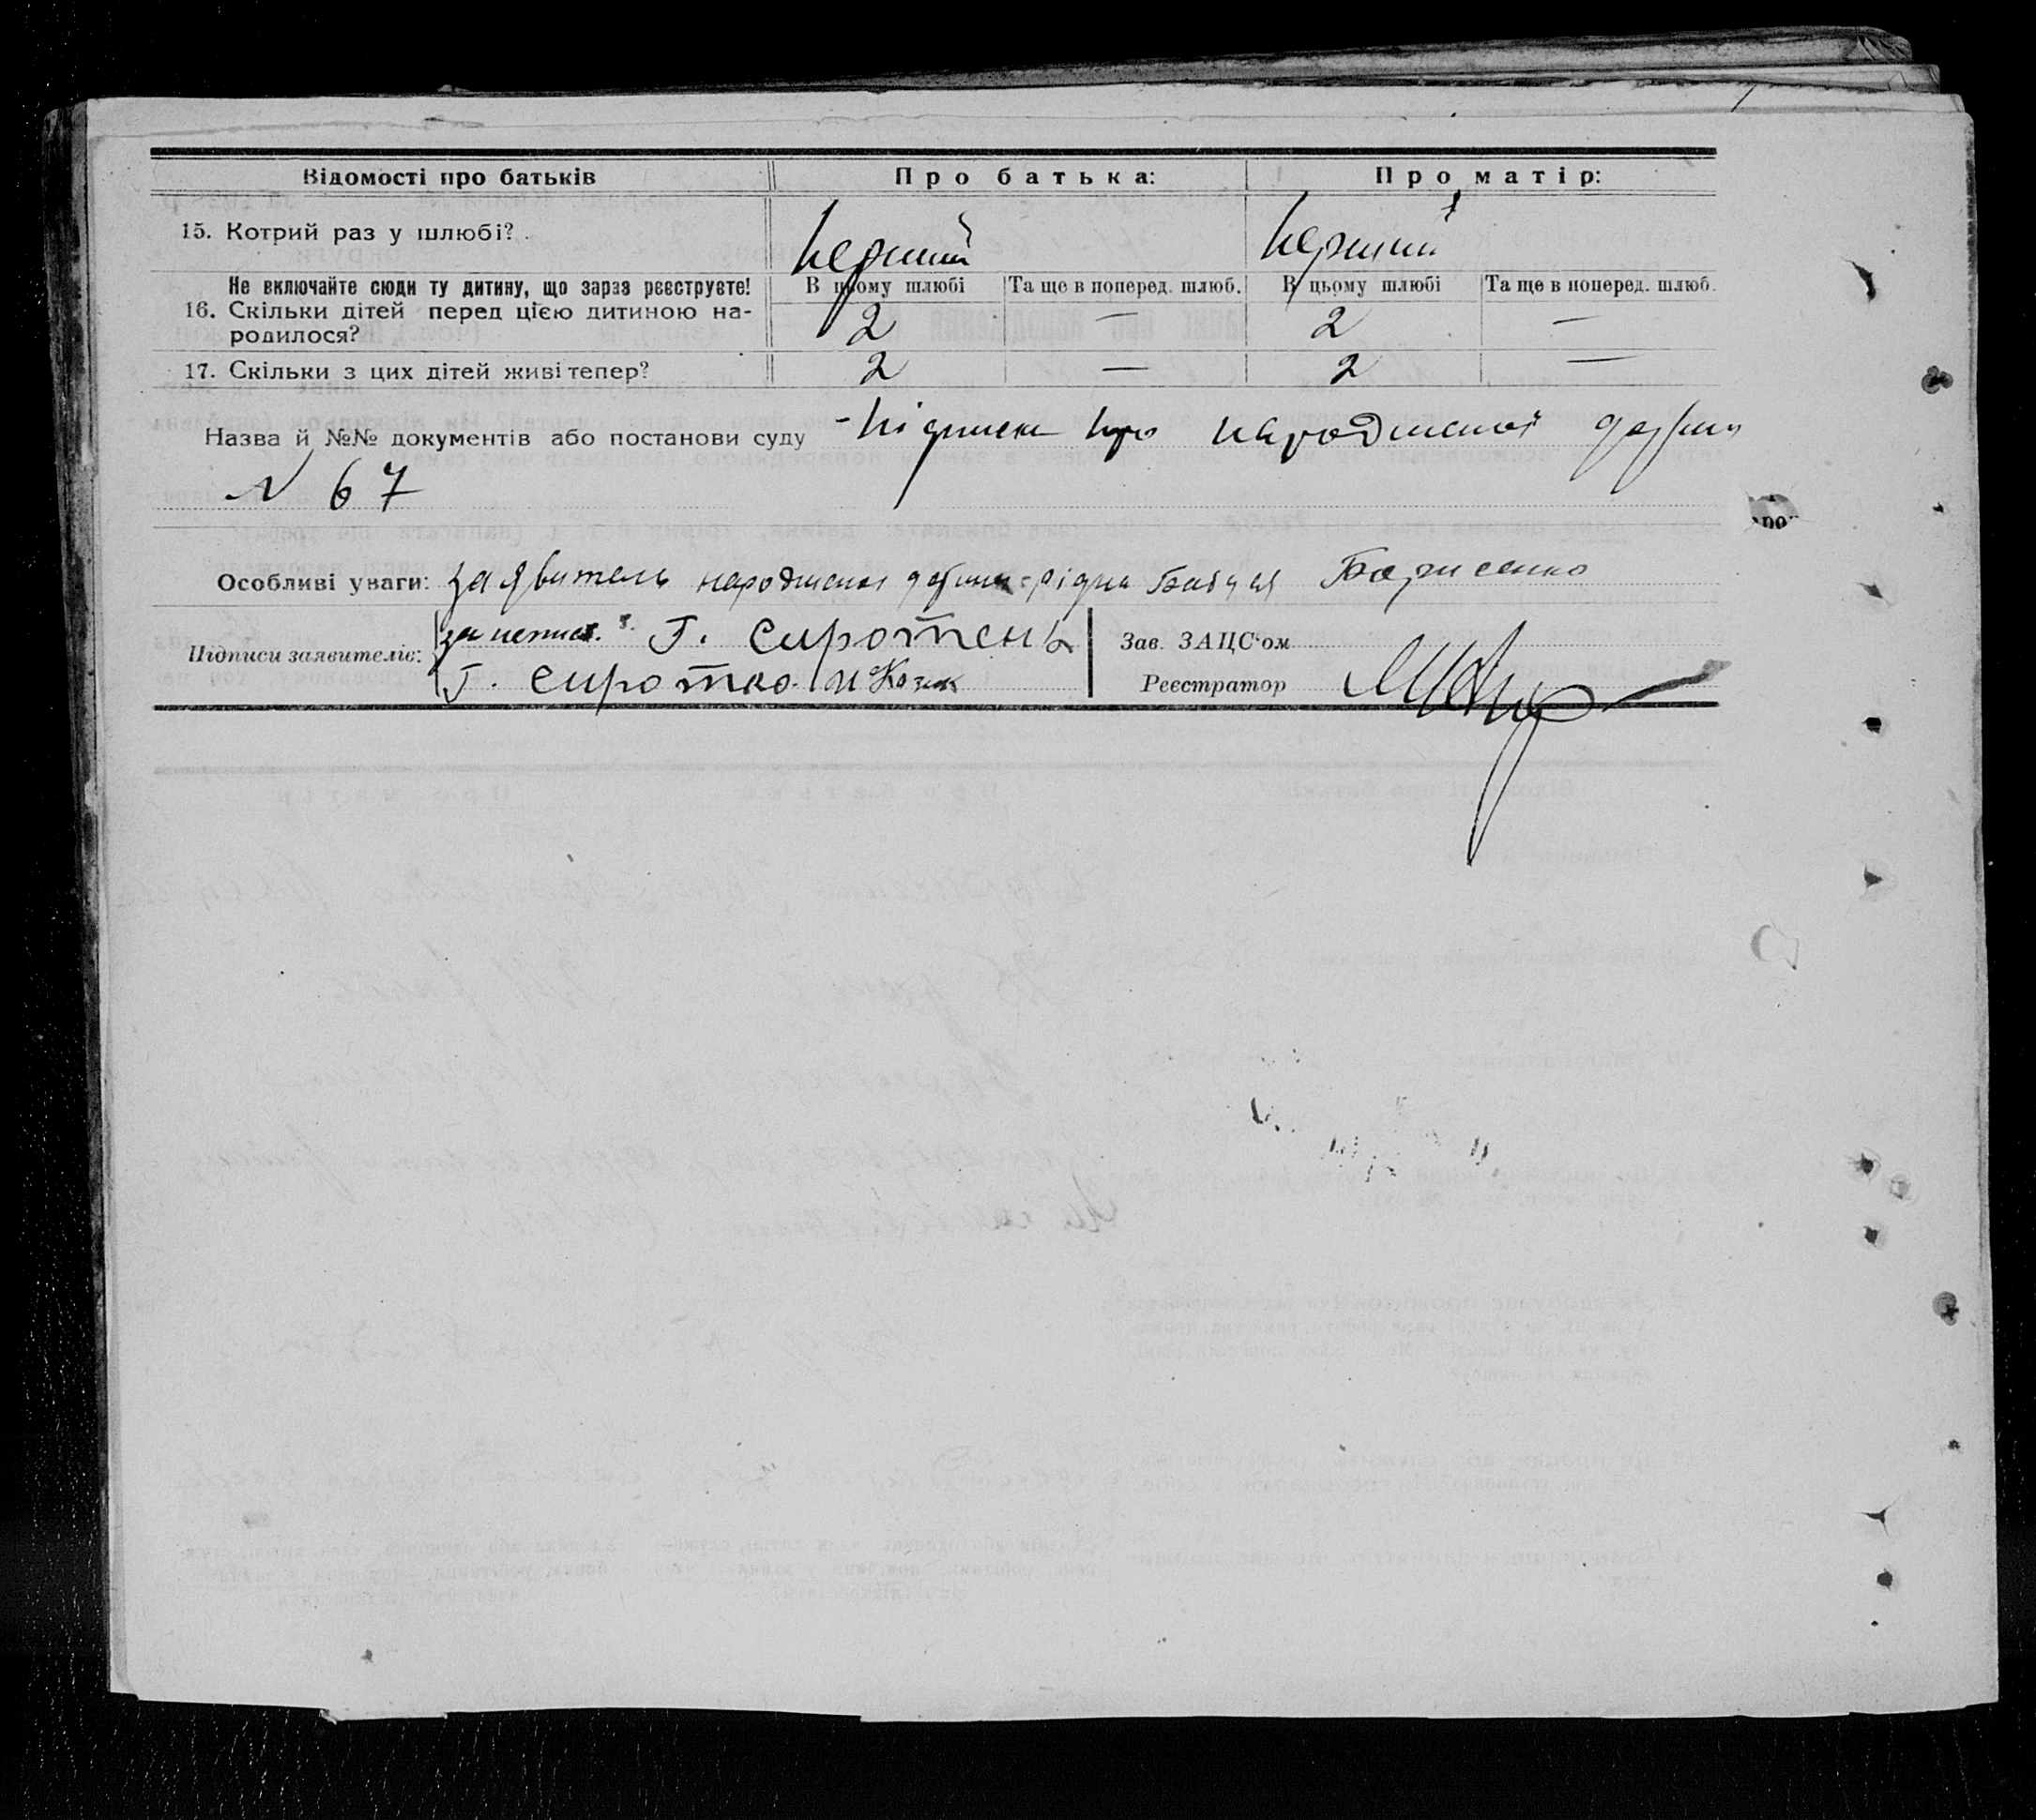 Відомості про батьків
Про батька:
Про матір:
15. Котрий раз у шлюбі?
Перший
Перший
Не включайте сюди ту дитину, що зараз реєструєте!
В цьому шлюбі
Та ще в поперед. шлюб.
В цьому шлюбі
Та ще в поперед. шлюб.
16. Скільки дітей перед цією дитиною на-
родилося?
2
—
2
—
17. Скільки з цих дітей живі тепер?
2
—
2
—
Назва й №№ документів або постанови суду - Підписка про
N 67
Особливі уваги: заявитель рідна бабця Борисенко
Підписи заявителів:
за непис. Г. Сиротень
Г. Сиротко
Зав. ЗАЦС'ом
Реєстратор